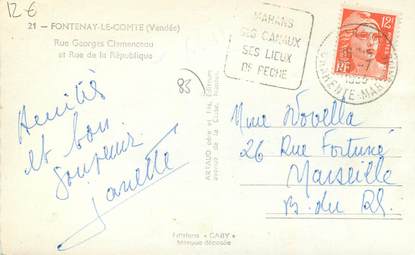 12€
21 - FONTENAY-LE-COMTE (Vendée)
Rue Georges Clemenceau
et Rue de la République
MARANS
SES CANAUX
SES LIEUX
DE PECHE
12F
RF
CHARENTE-MAR
85
Amitiés
et bon
souvenir
Janette
ARTAUD père et fils, Editeurs
avenue de la Close, Nantes
Mme Novella
26 Rue Fortuné
Marseille
B. du Rh.
Editions "GABY"
Marque déposée